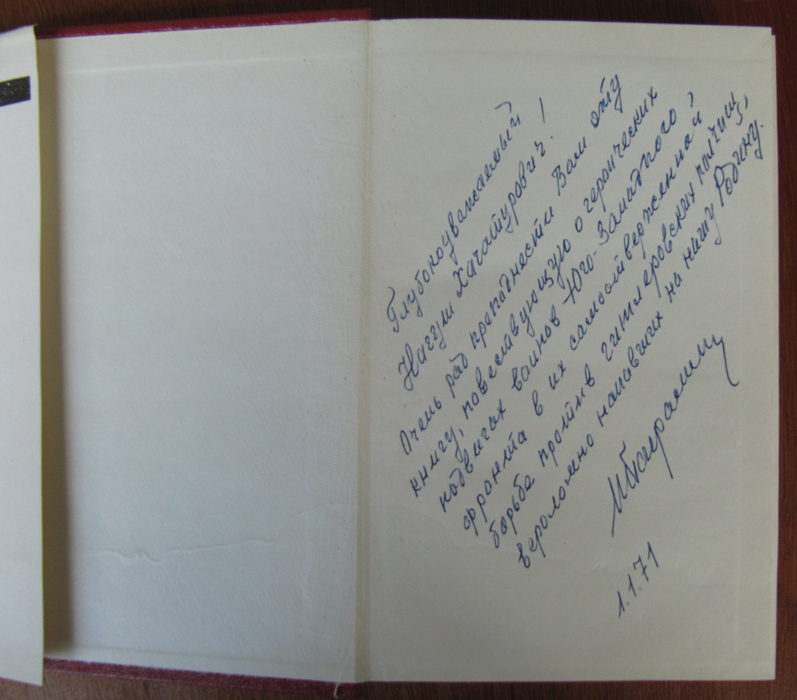 Глубокоуважаемый
Нагуш Хачатурович!
Очень рад преподнести Вам эту
книгу, повествующую о героических
подвигах воинов Юго-Западного
фронта в их самоотверженной
борьбе против гитлеровских полчищ,
вероломно напавших на нашу Родину.
ИБаграмян
1.1.71